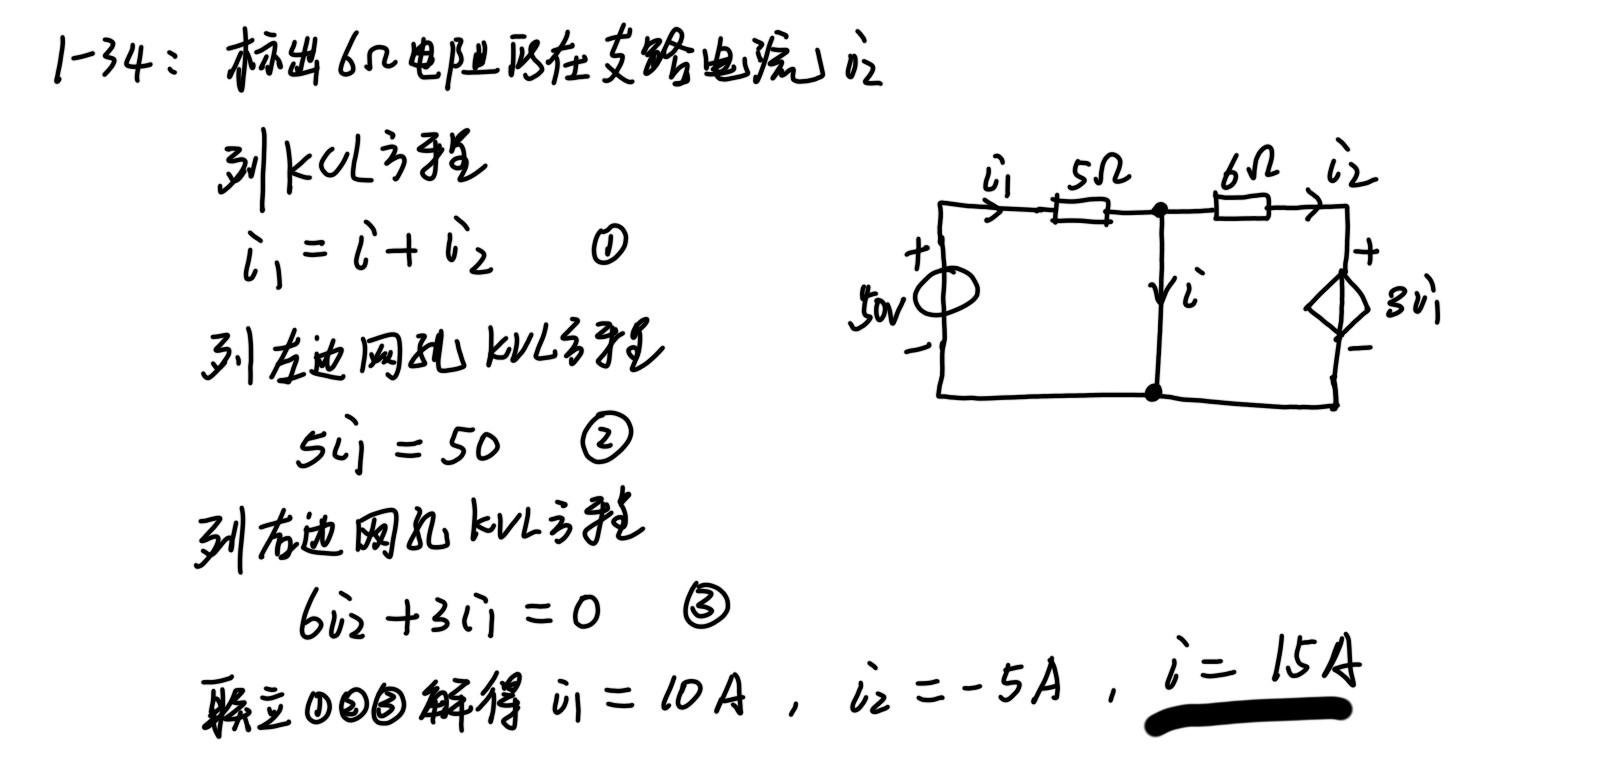 1-34: 标出6Ω电阻所在支路电流i₂
列KCL方程
i₁ = i + i₂ ①
列左边网孔KVL方程
5i₁ = 50 ②
列右边网孔KVL方程
6i₂ + 3i₁ = 0 ③
联立①②③解得 i₁ = 10A , i₂ = -5A , i = 15A
i₁ 5Ω 6Ω i₂
+ +
50V i 3i₁
- -